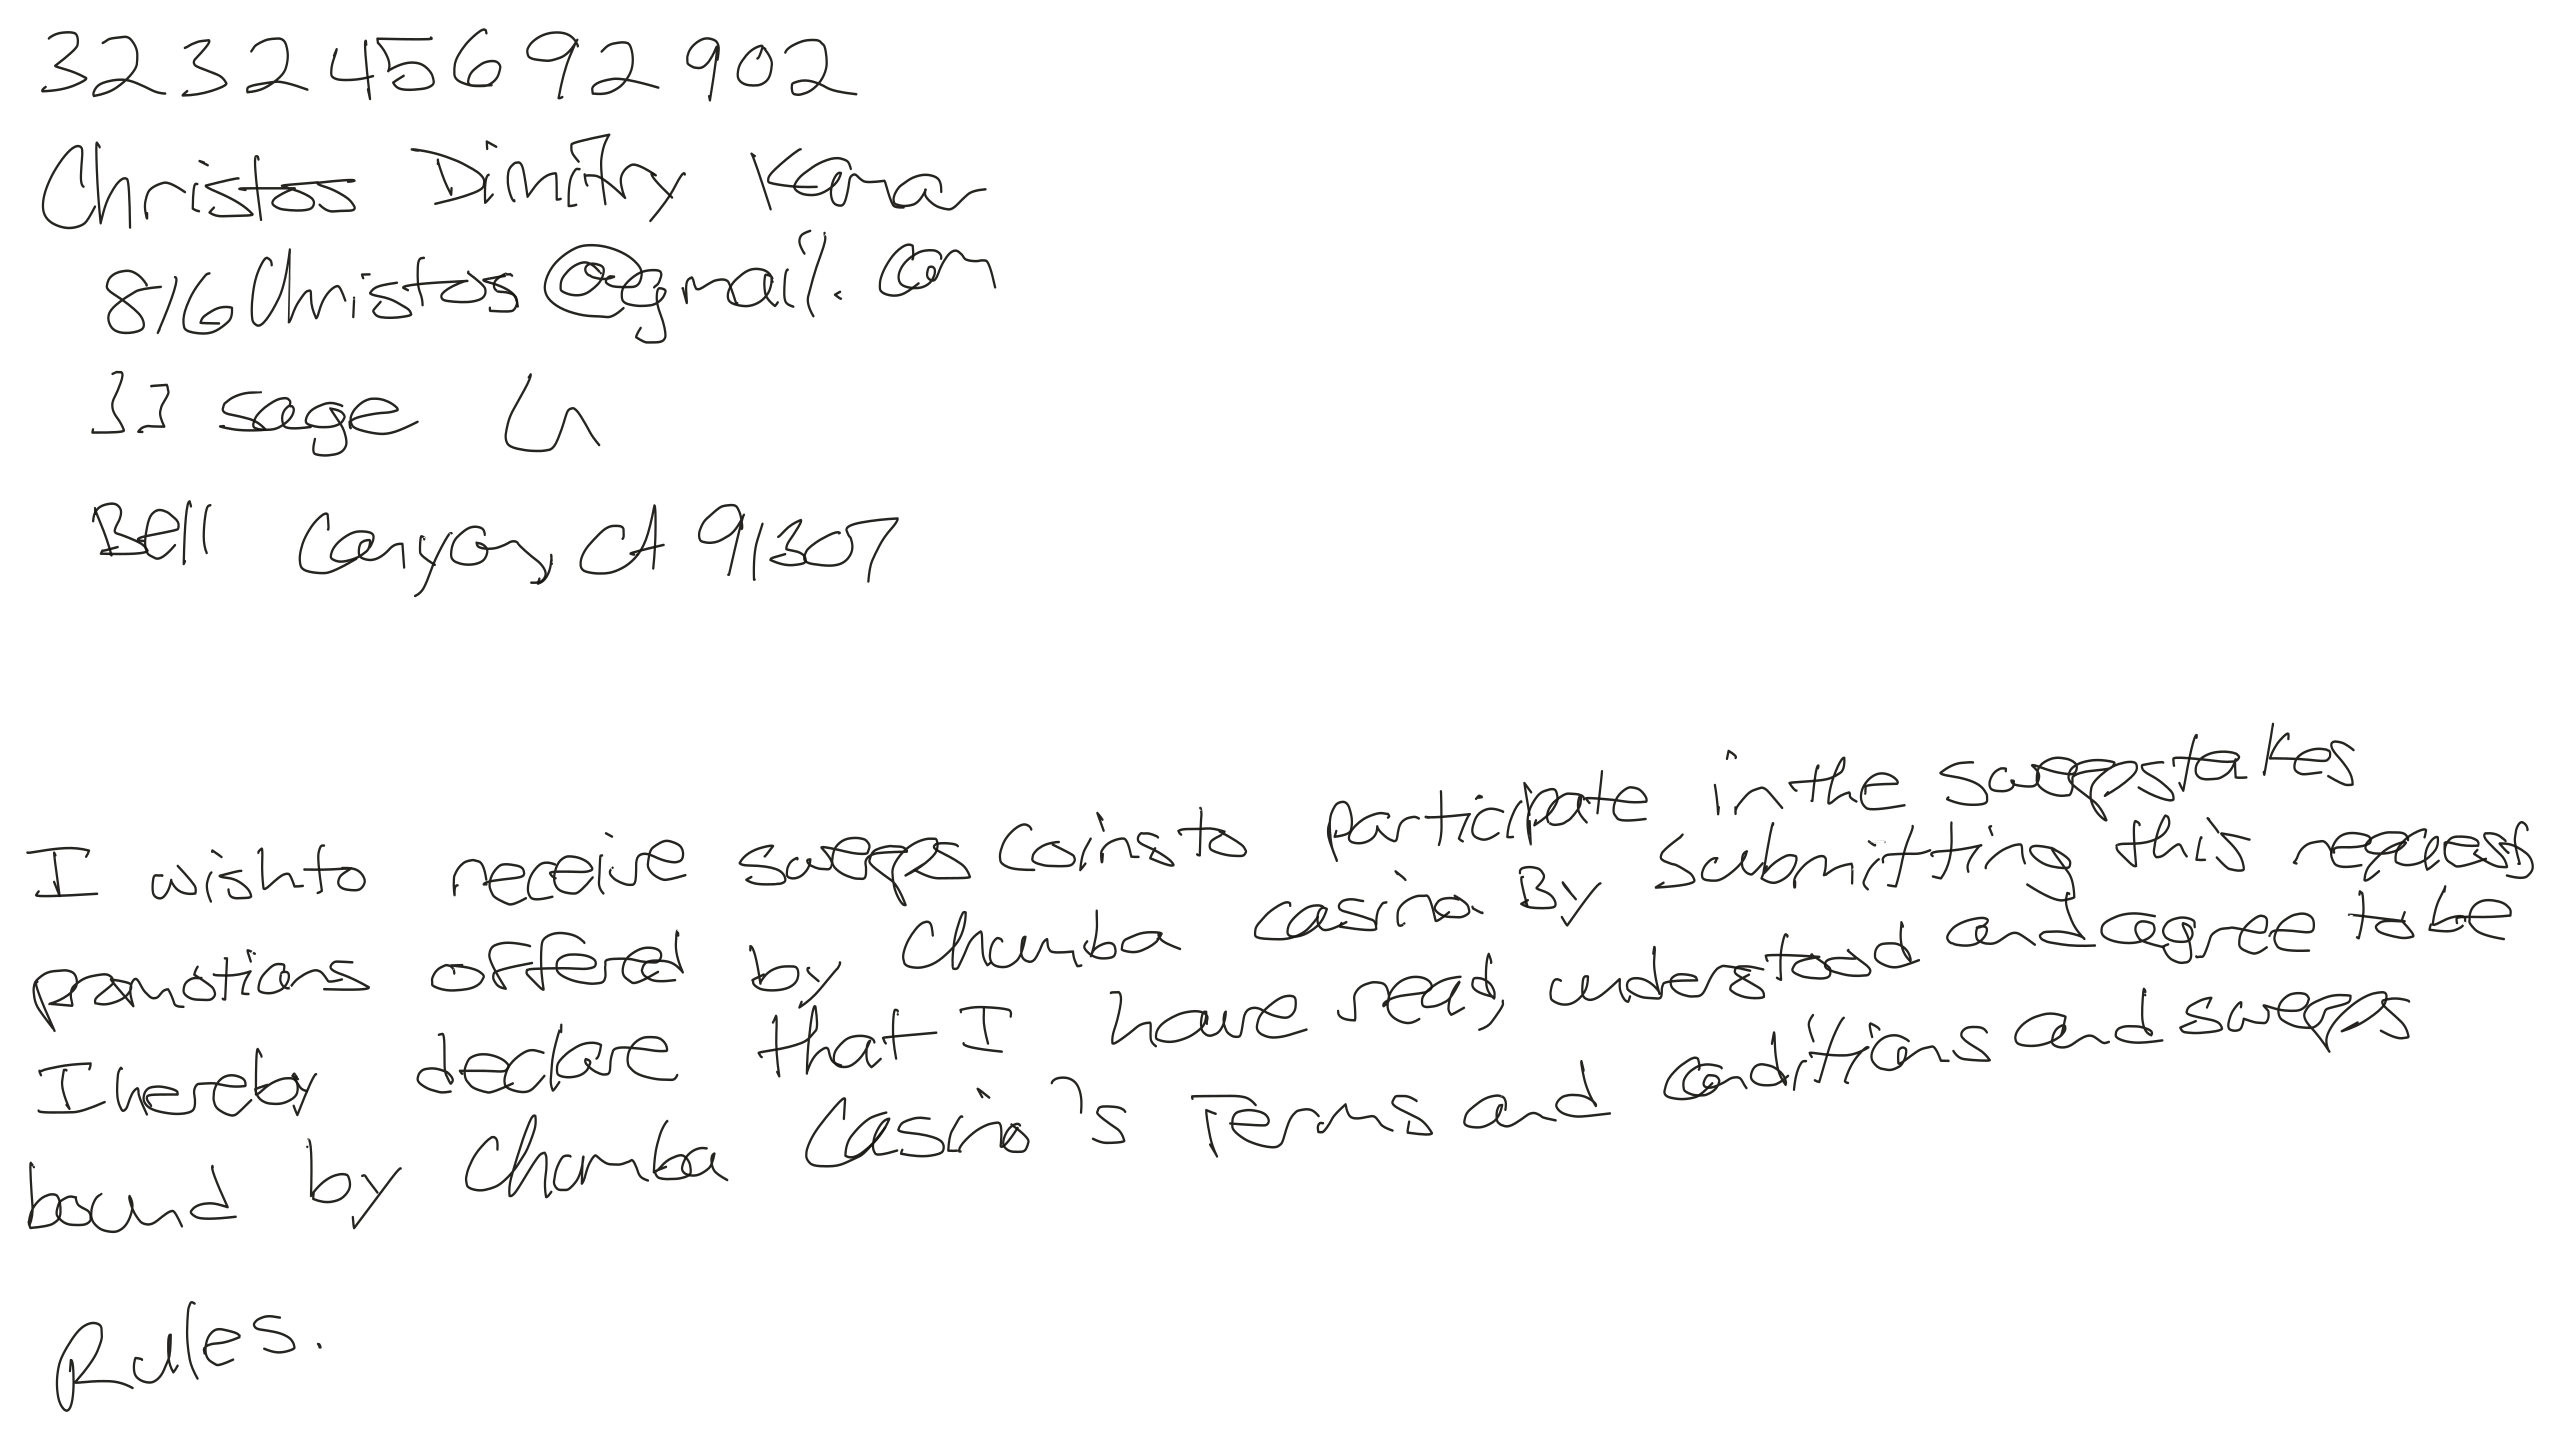 323245692902
Christos Dimitry Kanar
816Christos@gmail.com
33 sage Ln
Bell Canyon, CA 91307
I wish to receive sweeps Coins to participate in the sweepstakes
promotions offered by Chumba casino. By Submitting this request,
I hereby declare that I have read, understood and agree to be
bound by Chumba Casino's Terms and conditions and sweeps
Rules.